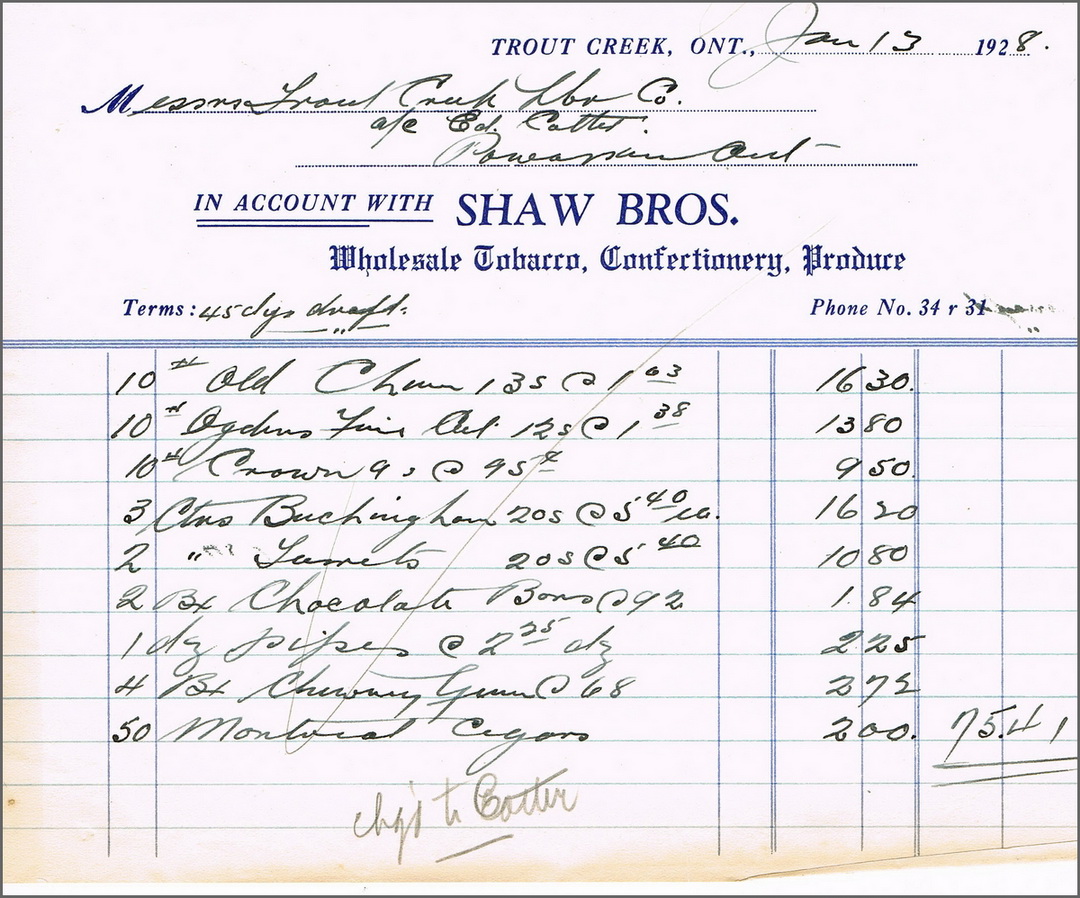 TROUT CREEK, ONT., Jan 13 1928.
Messrs Trout Creek Lbr Co.
a/c Ed. Cotter.
Powassan Ont
IN ACCOUNT WITH SHAW BROS.
Wholesale Tobacco, Confectionery, Produce
Terms: 45 dys draft. Phone No. 34 r 31
10 # Old Chum 13s @ 1 63 16 30.
10 # Ogdens Fine Cut 12s @ 1 38 13 80
10 # Crown 9s @ 95 ¢ 9 50.
3 Ctns Buckingham 20s @ 5 40 ea. 16 20
2 " Turrets 20s @ 5 40 10 80
2 Bx Chocolate Bars @ 92 1.84
1 dz pipes @ 2 25 dz 2 25
4 Bx Chewing Gum @ 68 2 72
50 Montreal Cigars 2 00. 75.41
chg'd to Cotter